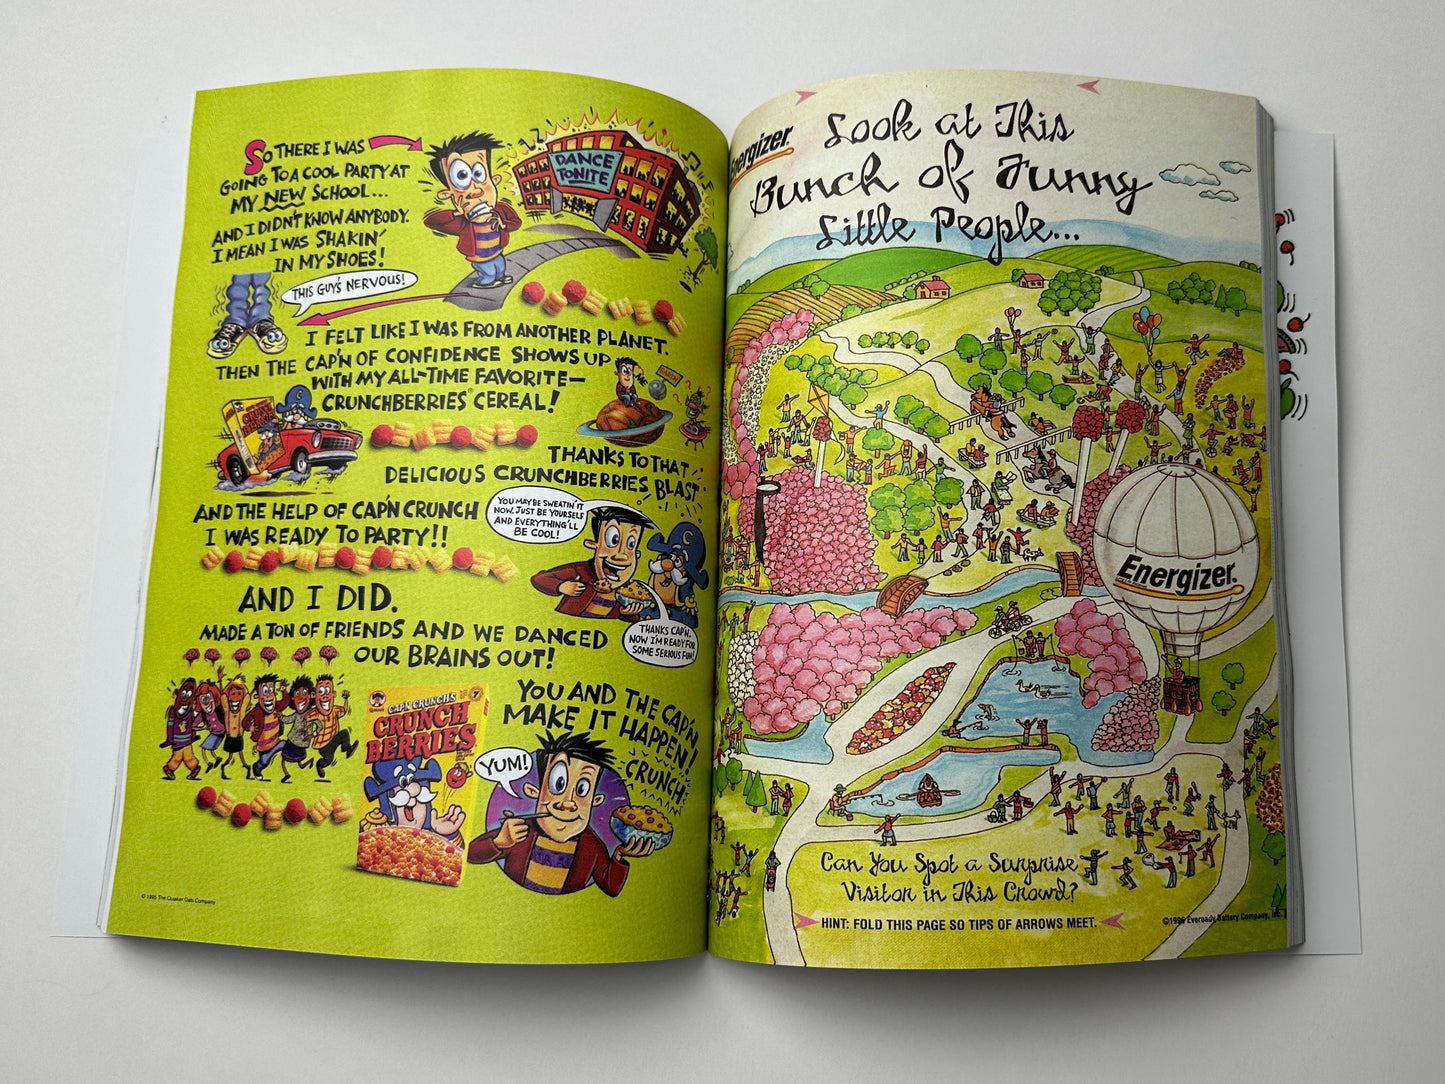 SO THERE I WAS
GOING TO A COOL PARTY AT
MY NEW SCHOOL...
AND I DIDN'T KNOW ANYBODY.
I MEAN I WAS SHAKIN'
IN MY SHOES!
DANCE
TONITE
THIS GUY'S NERVOUS!
I FELT LIKE I WAS FROM ANOTHER PLANET.
THEN THE CAP'N OF CONFIDENCE SHOWS UP
WITH MY ALL-TIME FAVORITE—
CRUNCHBERRIES® CEREAL!
EARTH
C
THANKS TO THAT
DELICIOUS CRUNCHBERRIES BLAST
AND THE HELP OF CAP'N CRUNCH
I WAS READY TO PARTY!!
YOU MAY BE SWEATIN' IT
NOW. JUST BE YOURSELF
AND EVERYTHING'LL
BE COOL!
C
AND I DID.
MADE A TON OF FRIENDS AND WE DANCED
OUR BRAINS OUT!
THANKS CAP'N.
NOW I'M READY FOR
SOME SERIOUS FUN!
YOU AND THE CAP'N
MAKE IT HAPPEN!
CRUNCH
YUM!
CAP'N CRUNCH'S
CRUNCH
BERRIES
© 1995 The Quaker Oats Company
Energizer.
Look at This
Bunch of Funny
Little People...
Energizer.
Can You Spot a Surprise
Visitor in This Crowd?
HINT: FOLD THIS PAGE SO TIPS OF ARROWS MEET.
©1996 Eveready Battery Company, Inc.